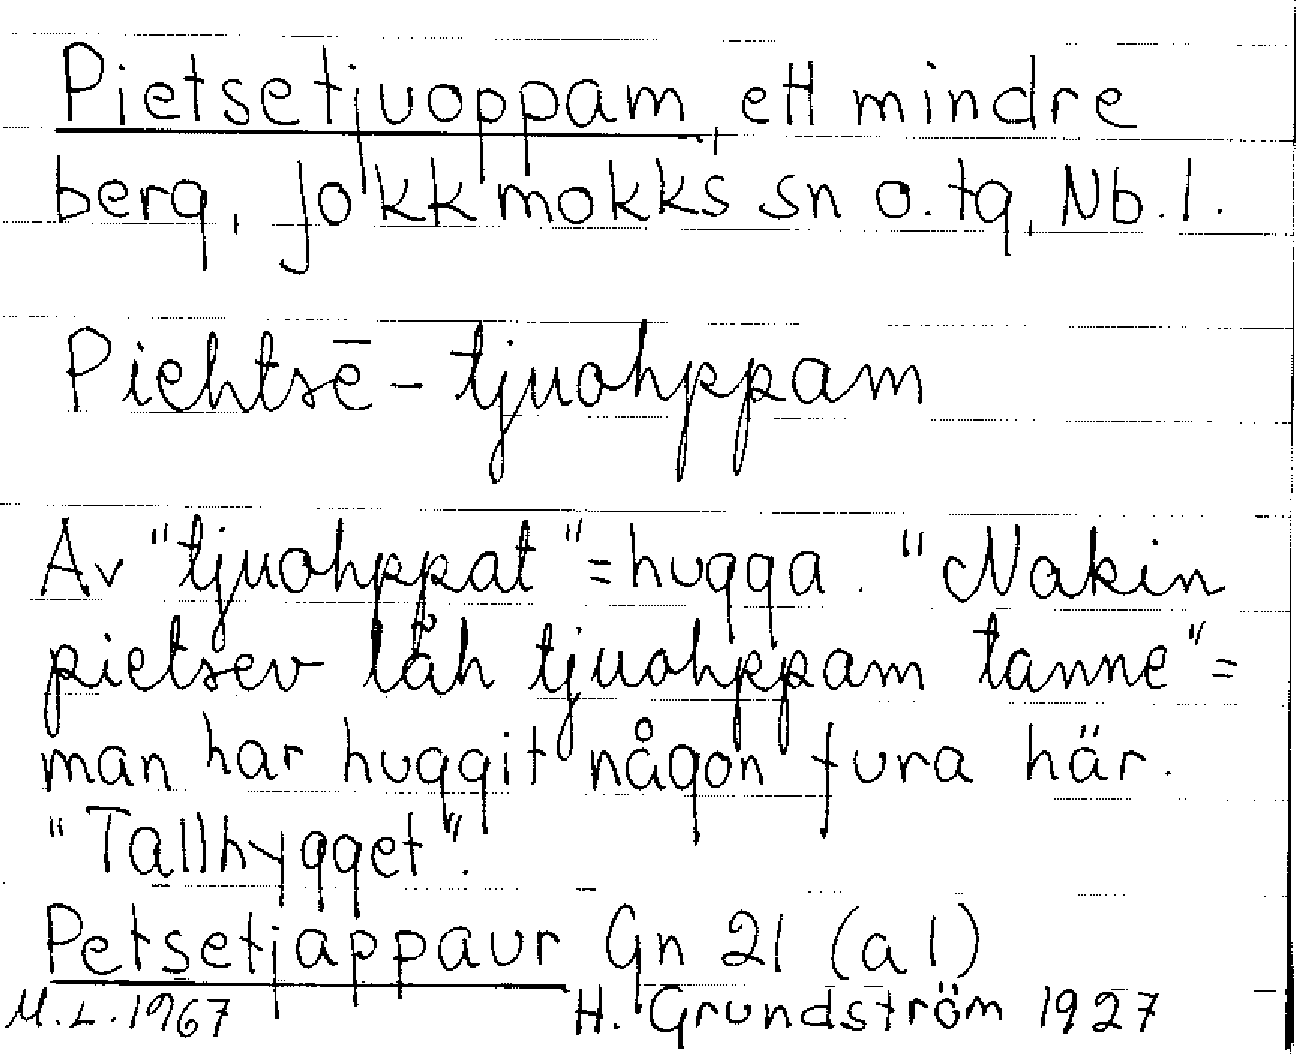 Pietsetjuoppam, ett mindre
berg, Jokkmokks sn o. tg, Nb. l.
Piehtsē-tjuohppam
Av "tjuohppat" = hugga. "Nakin
pietsev låh tjuohppam tanne" =
man har huggit någon fura här.
"Tallhygget".
Petsetjappaur Gn 21 (a l)
M.L. 1967 H. Grundström 1927